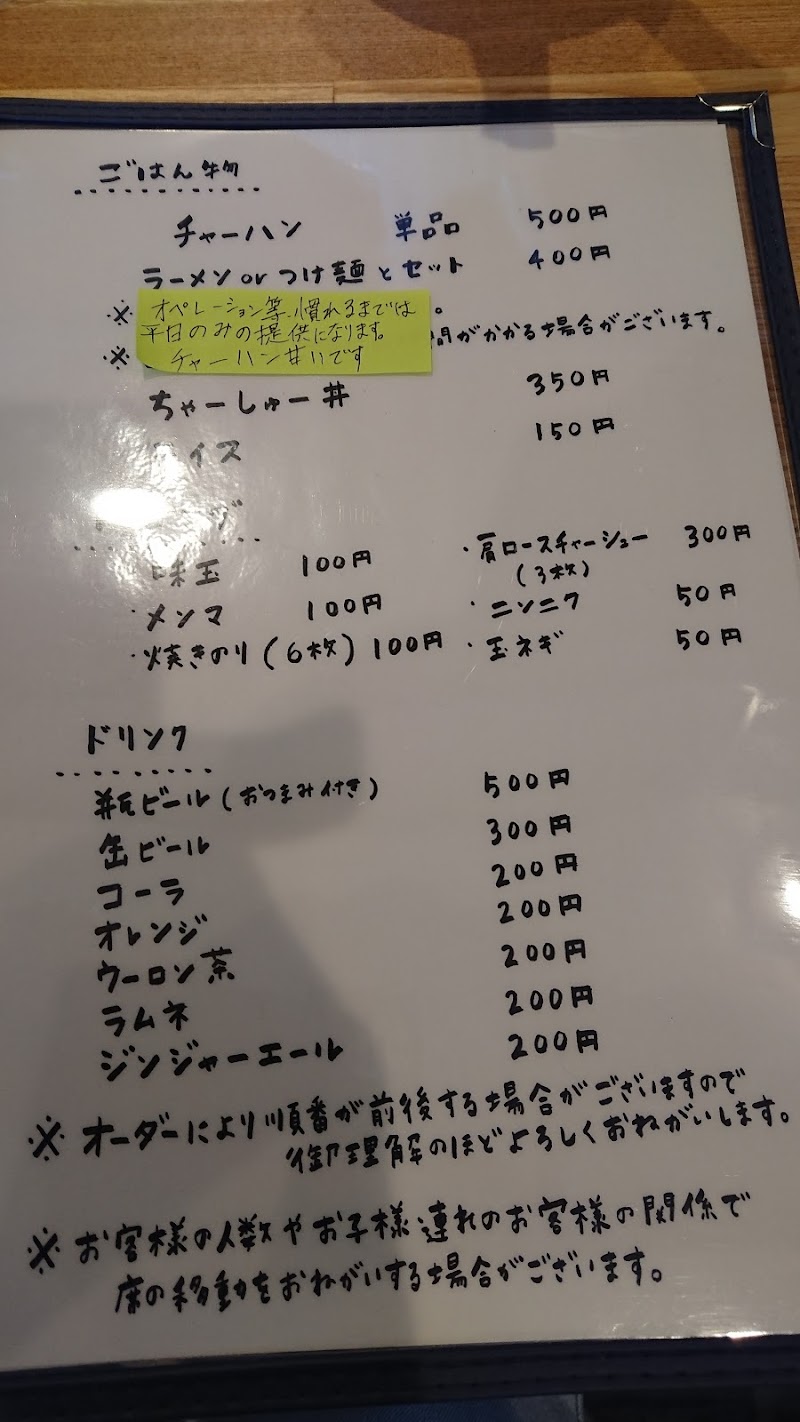 ごはん物
チャーハン 単品 500円
ラーメン or つけ麺とセット 400円
※ 。
オペレーション等、慣れるまでは
平日のみの提供になります。
チャーハン甘いです
※ 間がかかる場合がございます。
ちゃーしゅー丼 350円
イス 150円
味玉 100円
・肩ロースチャーシュー 300円
(3枚)
・メンマ 100円
・ニンニク 50円
・焼きのり(6枚) 100円
・玉ネギ 50円
ドリンク
瓶ビール(おつまみ付き) 500円
缶ビール 300円
コーラ 200円
オレンジ 200円
ウーロン茶 200円
ラムネ 200円
ジンジャーエール 200円
※ オーダーにより順番が前後する場合がございますので
御理解のほどよろしくおねがいします。
※ お客様の人数やお子様連れのお客様の関係で
席の移動をおねがいする場合がございます。